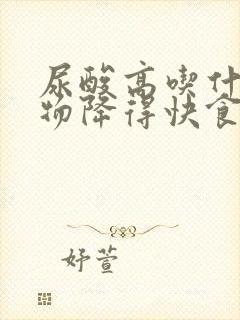 尿酸高喫什
物降得快食
妤萱